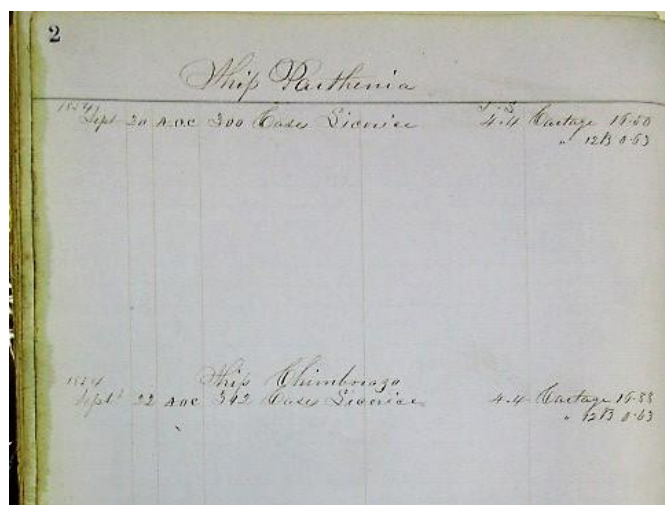 2
Ship Parthenia
Sept 20 A.O.C 300 Cases Licorice 4.4 Cartage
" 12B 0.63
Ship Chimborazo
Sept 22 A.O.C 342 Cases Licorice 4.4 Cartage
" 12B 0.63